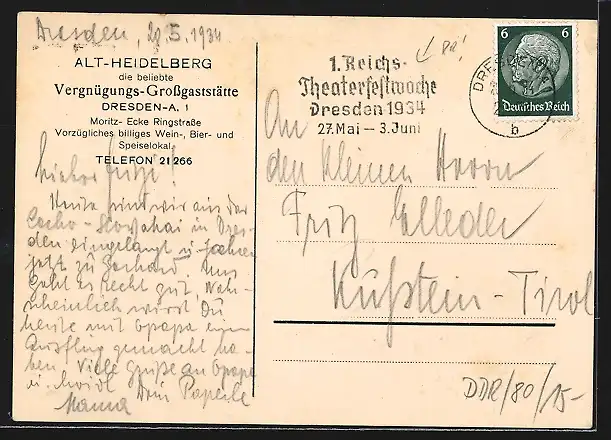 Dresden, 20.5.1934
ALT-HEIDELBERG
die beliebte
Vergnügungs-Großgaststätte
DRESDEN-A. 1
Moritz- Ecke Ringstraße
Vorzügliches billiges Wein-, Bier- und
Speiselokal.
TELEFON 21266
Lieber Fritz!
Heute sind wir aus der
Cecho-Slowakai in Dres-
den eingelangt u. fahren
jetzt zu Gerhard. Uns
geht es recht gut. Wahr-
scheinlich wirst Du
heute mit Opapa einen
Ausflug gemacht ha-
ben. Viele Grüße an Opapa
u. Dein Paperle
Mama
1. Reichs-
Theaterfestwoche
Dresden 1934
27. Mai – 3. Juni
DRESDEN
b
6 6
Deutsches Reich
An
den kleinen Herrn
Fritz Elleder
Kufstein-Tirol
DDR/80/15-